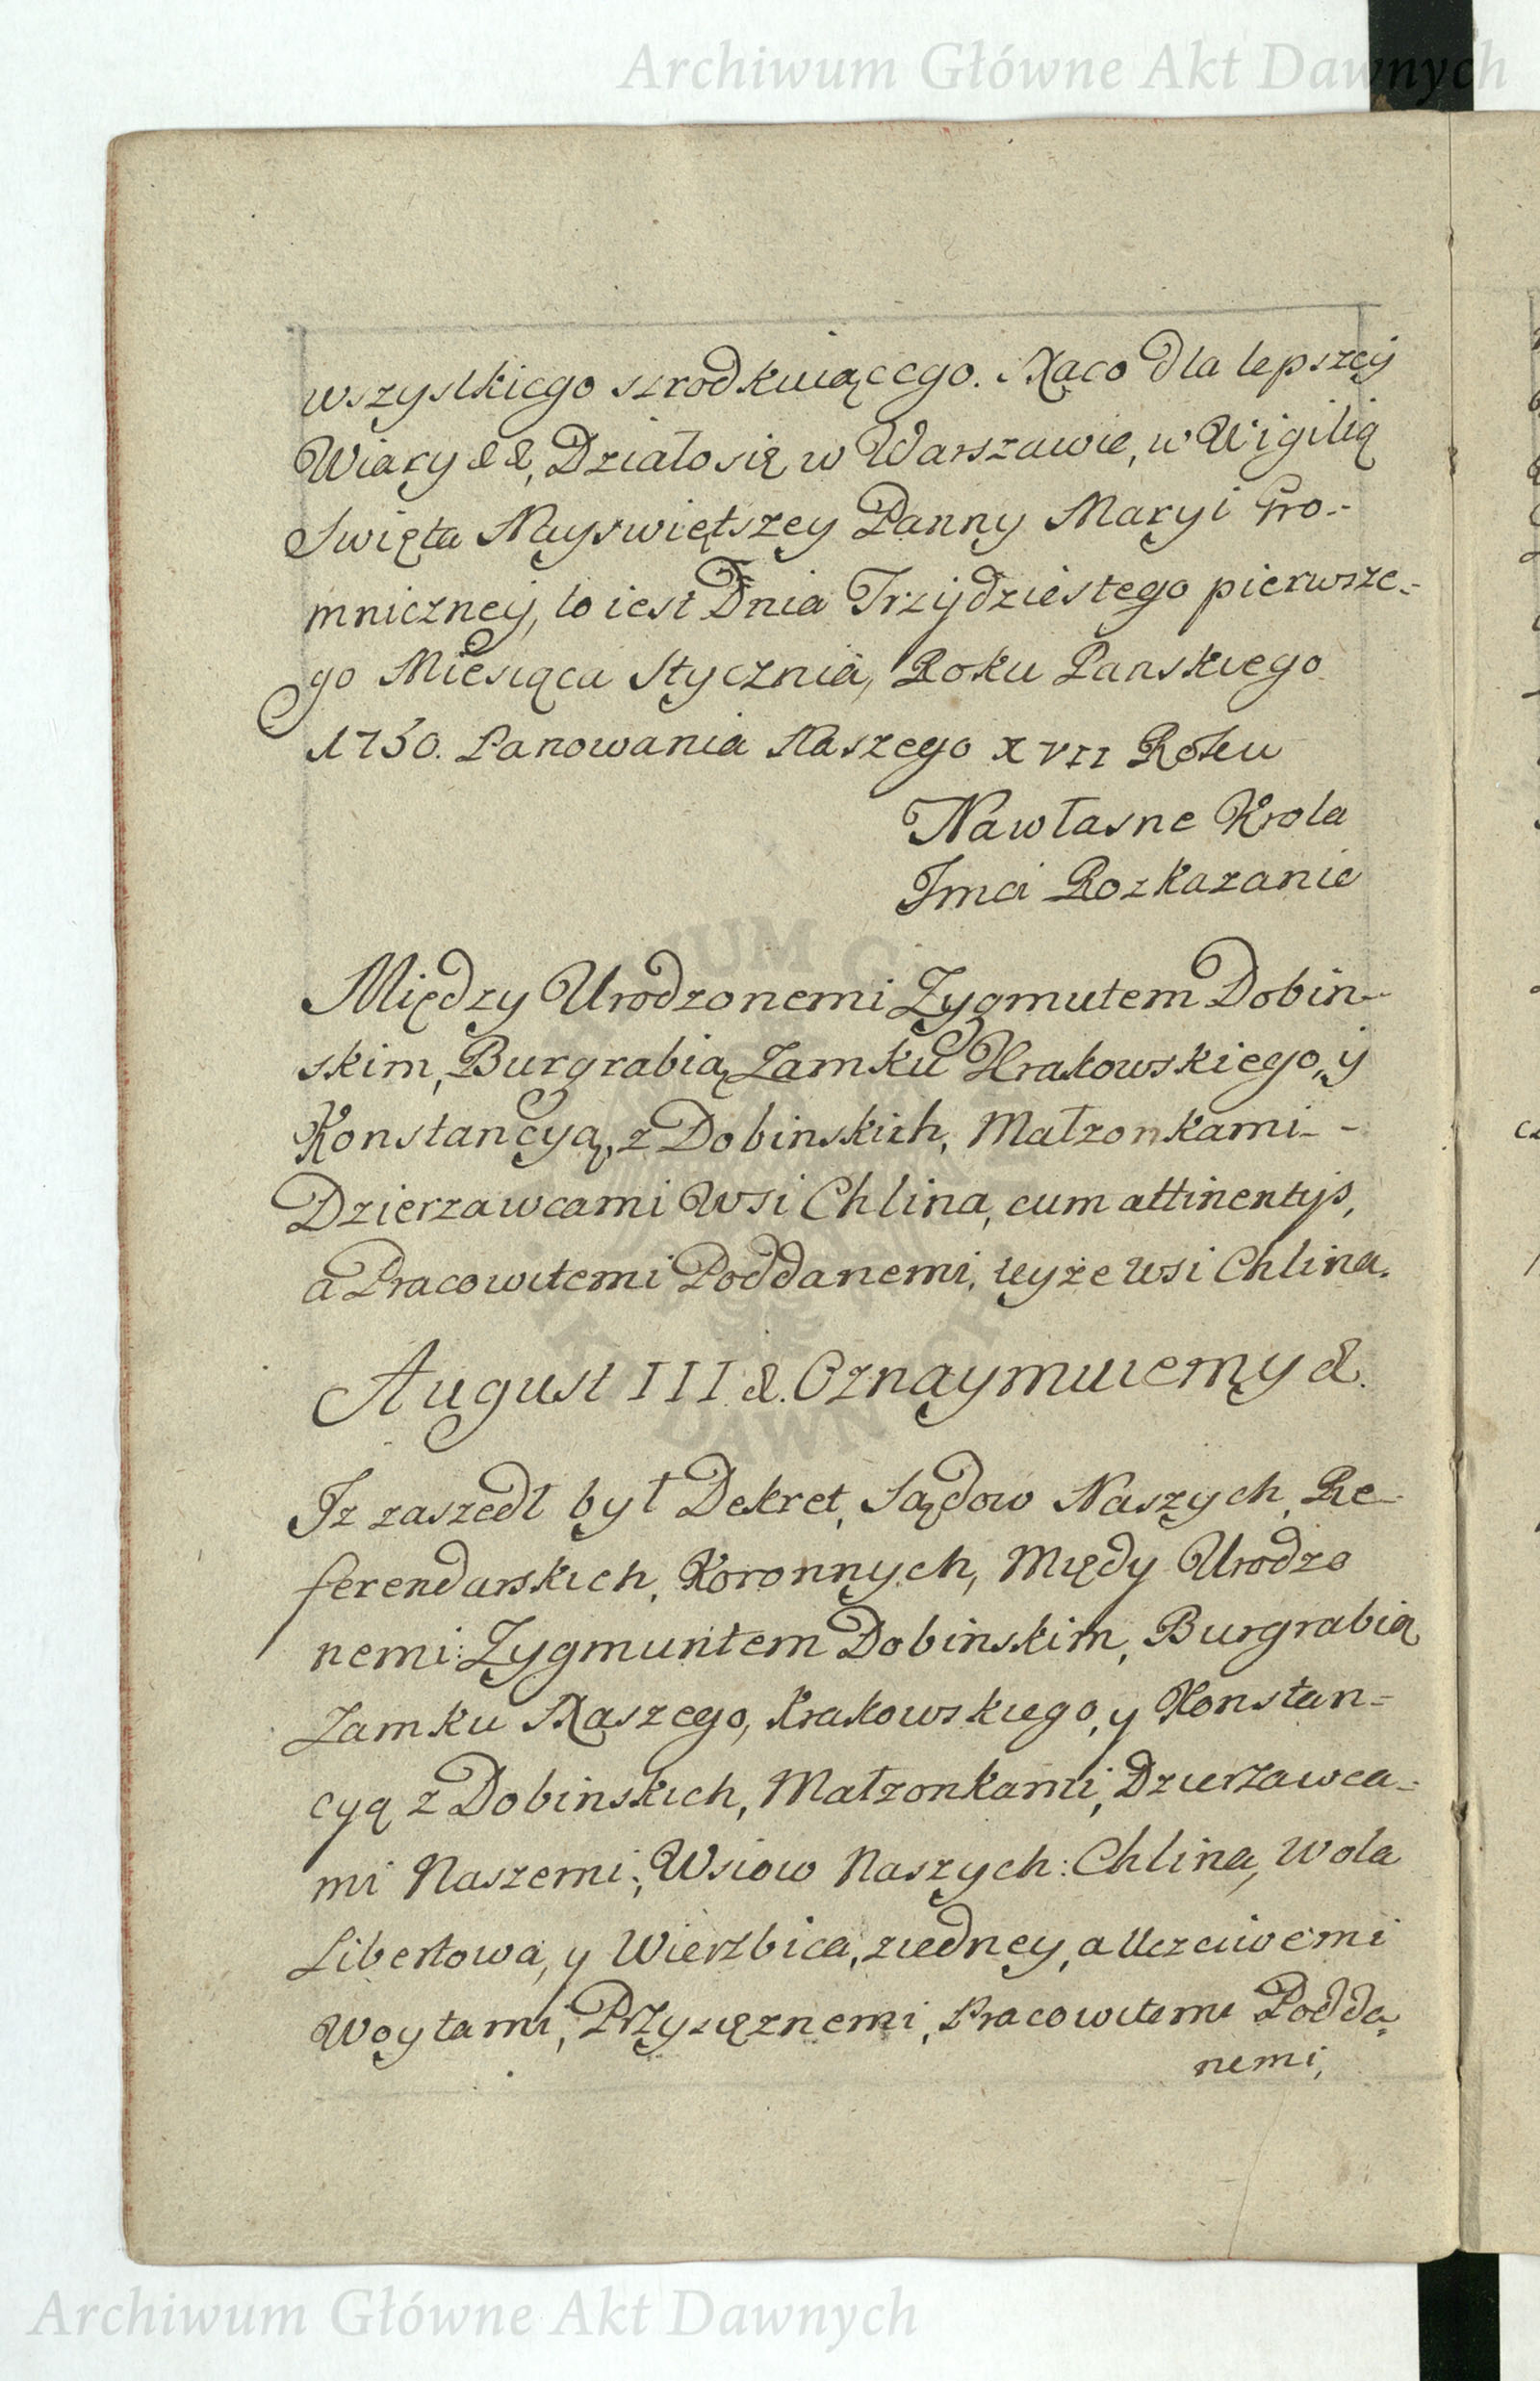 Archiwum Główne Akt Dawnych
wszystkiego szrodkuiącego. Naco dla lepszey
Wiary && Działo się w Warszawie, w Wigilią
Swięta Nayswiętszey Panny Maryi Gro-
mniczney, to iest Dnia Trzydziestego pierwsze-
go Miesiąca Stycznia, Roku Panskiego
1750. Panowania Naszego XVII Roku
Na własne Krola
Jmci Rozkazanie
Między Urodzonemi Zygmutem Dobin-
skim, Burgrabią Zamku Krakowskiego, y
Konstancyą, z Dobinskich, Małzonkami -
Dzierzawcami Wsi Chlina, cum attinentijs,
a Pracowitemi Poddanemi, teyże Wsi Chlina.
August III &. Oznaymuiemy &.
Iz zaszedł był Dekret, Sądow Naszych, Re-
ferendarskich, Koronnych, Międy Urodzo
nemi: Zygmuntem Dobinskim, Burgrabią
Zamku Naszego, Krakowskiego, y Konstan-
cyą z Dobinskich, Małzonkami, Dzierzawca-
mi Naszemi; Wsiow Naszych: Chlina, Wola
Libertowa, y Wierzbica, ziedney, a Uczciwemi
Woytami, Przysięznemi, Pracowitemi Podda
nemi,
Archiwum Główne Akt Dawnych